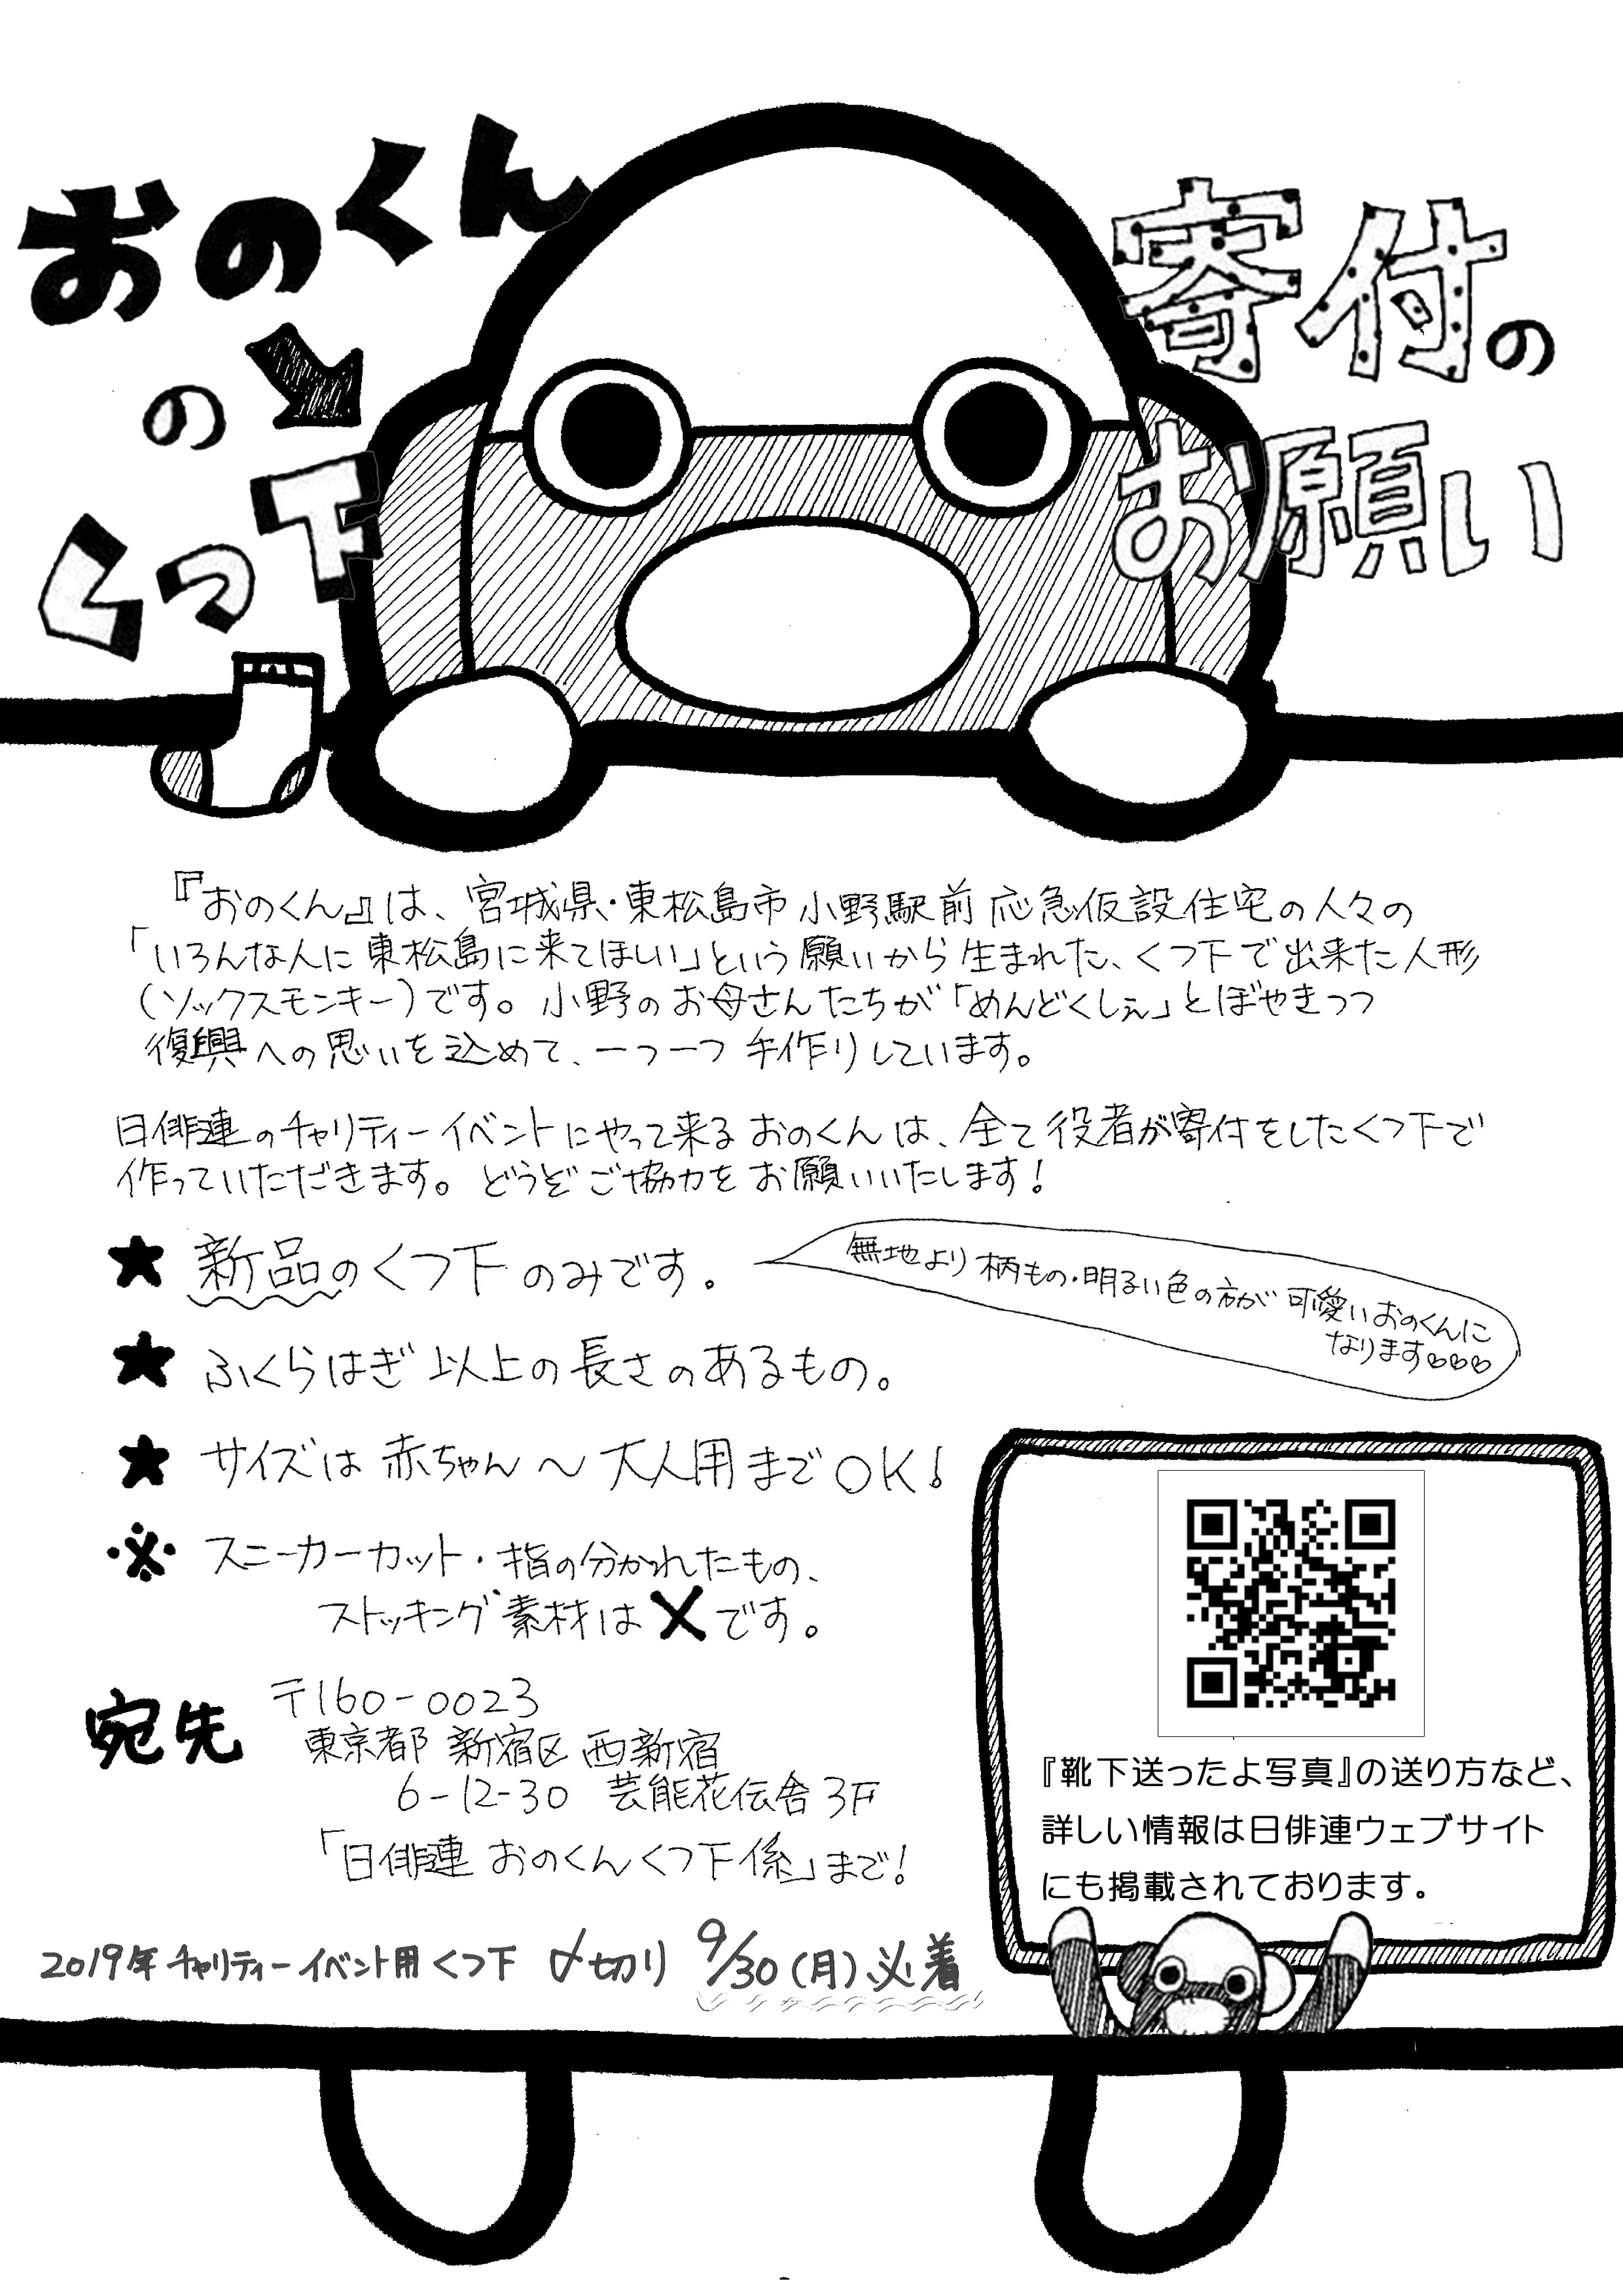 おのくん
の
くつ下
寄付の
お願い
『おのくん』は、宮城県・東松島市 小野駅前 応急仮設住宅の人々の
「いろんな人に東松島に来てほしい」という願いから生まれた、くつ下で出来た人形
(ソックスモンキー)です。小野のお母さんたちが「めんどくしぇ」とぼやきつつ
復興への思いを込めて、一つ一つ 手作りしています。
日俳連のチャリティーイベントにやって来るおのくんは、全て役者が寄付をしたくつ下で
作っていただきます。どうぞご協力をお願いいたします!
★ 新品のくつ下のみです。
無地より柄もの・明るい色の方が可愛いおのくんに
なります♡♡♡
★ ふくらはぎ以上の長さのあるもの。
★ サイズは赤ちゃん〜大人用までOK!
※ スニーカーカット・指の分かれたもの、
ストッキング素材は✕です。
宛先 〒160-0023
東京都 新宿区 西新宿
6-12-30 芸能花伝舎3F
「日俳連 おのくんくつ下係」まで!
『靴下送ったよ写真』の送り方など、
詳しい情報は日俳連ウェブサイト
にも掲載されております。
2019年チャリティーイベント用くつ下 〆切り 9/30(月)必着